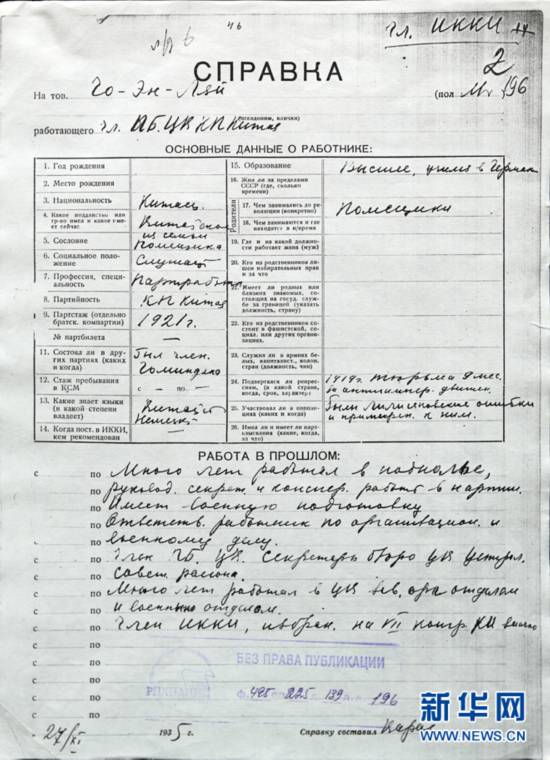 46
Чл. ИККИ
СПРАВКА
2
На тов. Чо-Эн-Лай (пол М.) 196
(псевдоним, клички)
работающего Чл. П.Б. ЦК КП Китая
ОСНОВНЫЕ ДАННЫЕ О РАБОТНИКЕ:
1. Год рождения
2. Место рождения
3. Национальность Китаец
4. Какое подданство или гр-во имел и какое имеет сейчас Китайское
5. Сословие из семьи помещика
6. Социальное положение Служащ.
7. Профессия, специальность Партработник
8. Партийность КП Китая
9. Партстаж (отдельно братск. компартии) 1921 г.
№ партбилета —
11. Состоял ли в других партиях (каких и когда) был член. Гоминдана
12. Стаж пребывания в КСМ с — по —
13. Какие знает языки (в какой степени владеет) Китайск. Немецк.
14. Когда пост. в ИККИ, кем рекомендован
15. Образование Высшее, учился в Герман
Родители
16. Жил ли за пределами СССР (где, сколько времени)
17. Чем занимались до революции (конкретно) Помещики
18. Чем занимаются и где находятся в н/время
19. Где и на какой должности работает жена (муж)
20. Кто из родственников лишен избирательных прав и за что
21. Имеет ли родных или близких знакомых, состоящих на госуд. службе за границей (указать должность, страну)
22. Кто из родственников состоит в фашистской, социал. или других организациях.
23. Служил ли в армиях белых, капиталист., колон. стран (должность, чин)
24. Подвергался ли репрессиям, (в какой стране, когда, срок, характер) 1919 г. тюрьма 9 мес. за антиимпер. движен.
25. Участвовал ли в оппозиции (каких и когда) были лилисановские ошибки и примирен. к ним.
26. Имел ли и имеет ли партвзыскания (какие, когда, за что)
РАБОТА В ПРОШЛОМ:
с по Много лет работал в подполье,
с по руковод. секрет. и конспер. работ. в партии.
с по Имеет военную подготовку
с по Ответств. работник по организацион. и
с по военному делу.
с по Член П.Б. ЦК. Секретарь бюро ЦК централ.
с по совет. района.
с по Много лет работал в ЦК зав. орг отделом
с по и военным отделом.
с по Член ИККИ, избран. на VII конгр. КИ
с по
с по БЕЗ ПРАВА ПУБЛИКАЦИИ
с по РЦХИДНИ
с по Ф. 495 225 139 196
с по
27/XI 1935 г. Справку составил
新华网
WWW.NEWS.CN